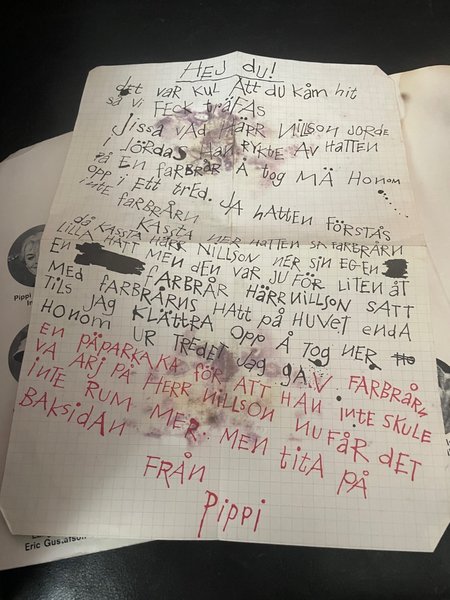 HEJ du!
det var kul Att du kåm hit
så vi FECK träFAS
Jissa vad HÄRR Nillson JORDE
I JÖRDAS HAN RYKTE AV HATTEN
På EN FARBRÅR Å tog MÄ HONOM
OPP i Ett tRED. JA hATTEN FÖRSTÅS
iNTE FARBRÅRN
då KASSTA NER HATTEN SA FARBRÅRN
då KASSTA HÄRR NILLSON NER SIN EGEN
LILLA HATT MEN dEN VAR JU FÖR LITEN åT
EN FARBRÅR HÄRR NILLSON SATT
MED FARBRÅRNS HATT på HUVET ENDA
TILS JAG KLÄTTRA OPP Å TOG NER
HONOM UR TREDET JAG GAV FARBRÅRN
EN PÄPARKAKA FÖR ATT HAN INTE SKULE
VA ARJ På HERR NILLSON NU FåR dET
INTE RUM MER MEN titA PÅ
BAKSIDAN
FRÅN
Pippi
Pippi
Eric Gustafson